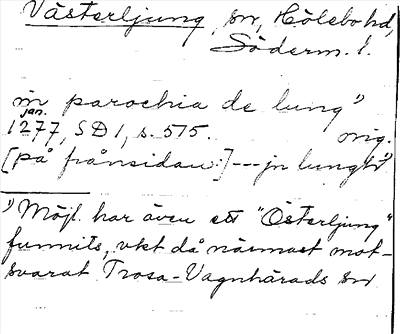 Västerljung, sn, Hölebo hd,
Söderm. l.
in parochia de lung¹⁾
jan.
1277, SD 1, s. 575. orig.
[på frånsidan:] --- jn lungh¹⁾
¹⁾ Möjl. har även ett "Österljung"
funnits, vkt då närmast mot-
svarat Trosa-Vagnhärads sn